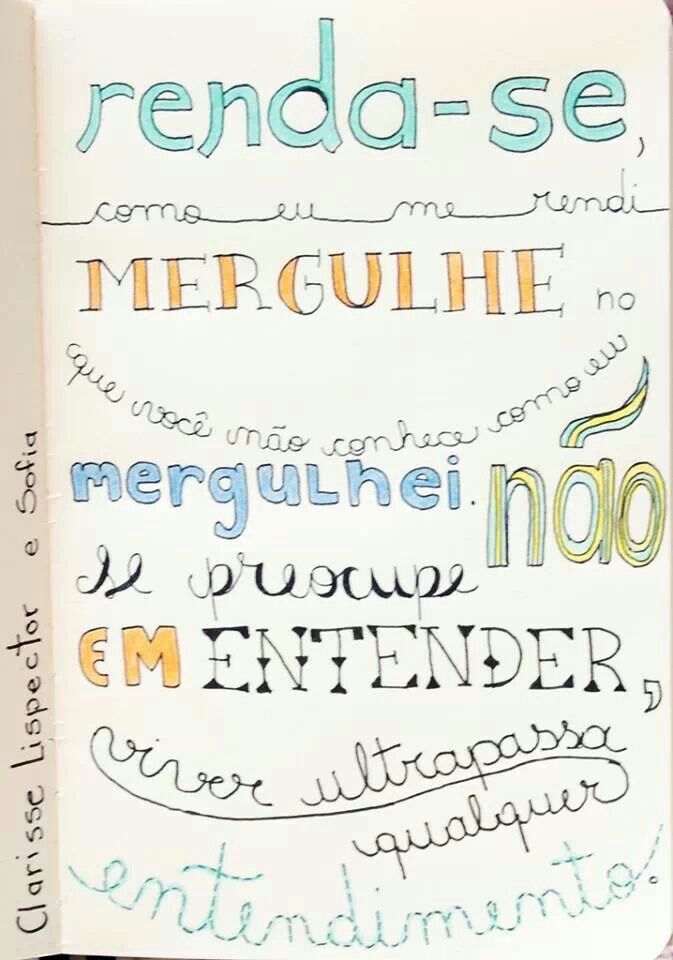 renda-se,
como eu me rendi
MERGULHE no
que você não conhece como eu
mergulhei. não
se preocupe
EM ENTENDER,
viver ultrapassa
qualquer
entendimento.
Clarisse Lispector e Sofia